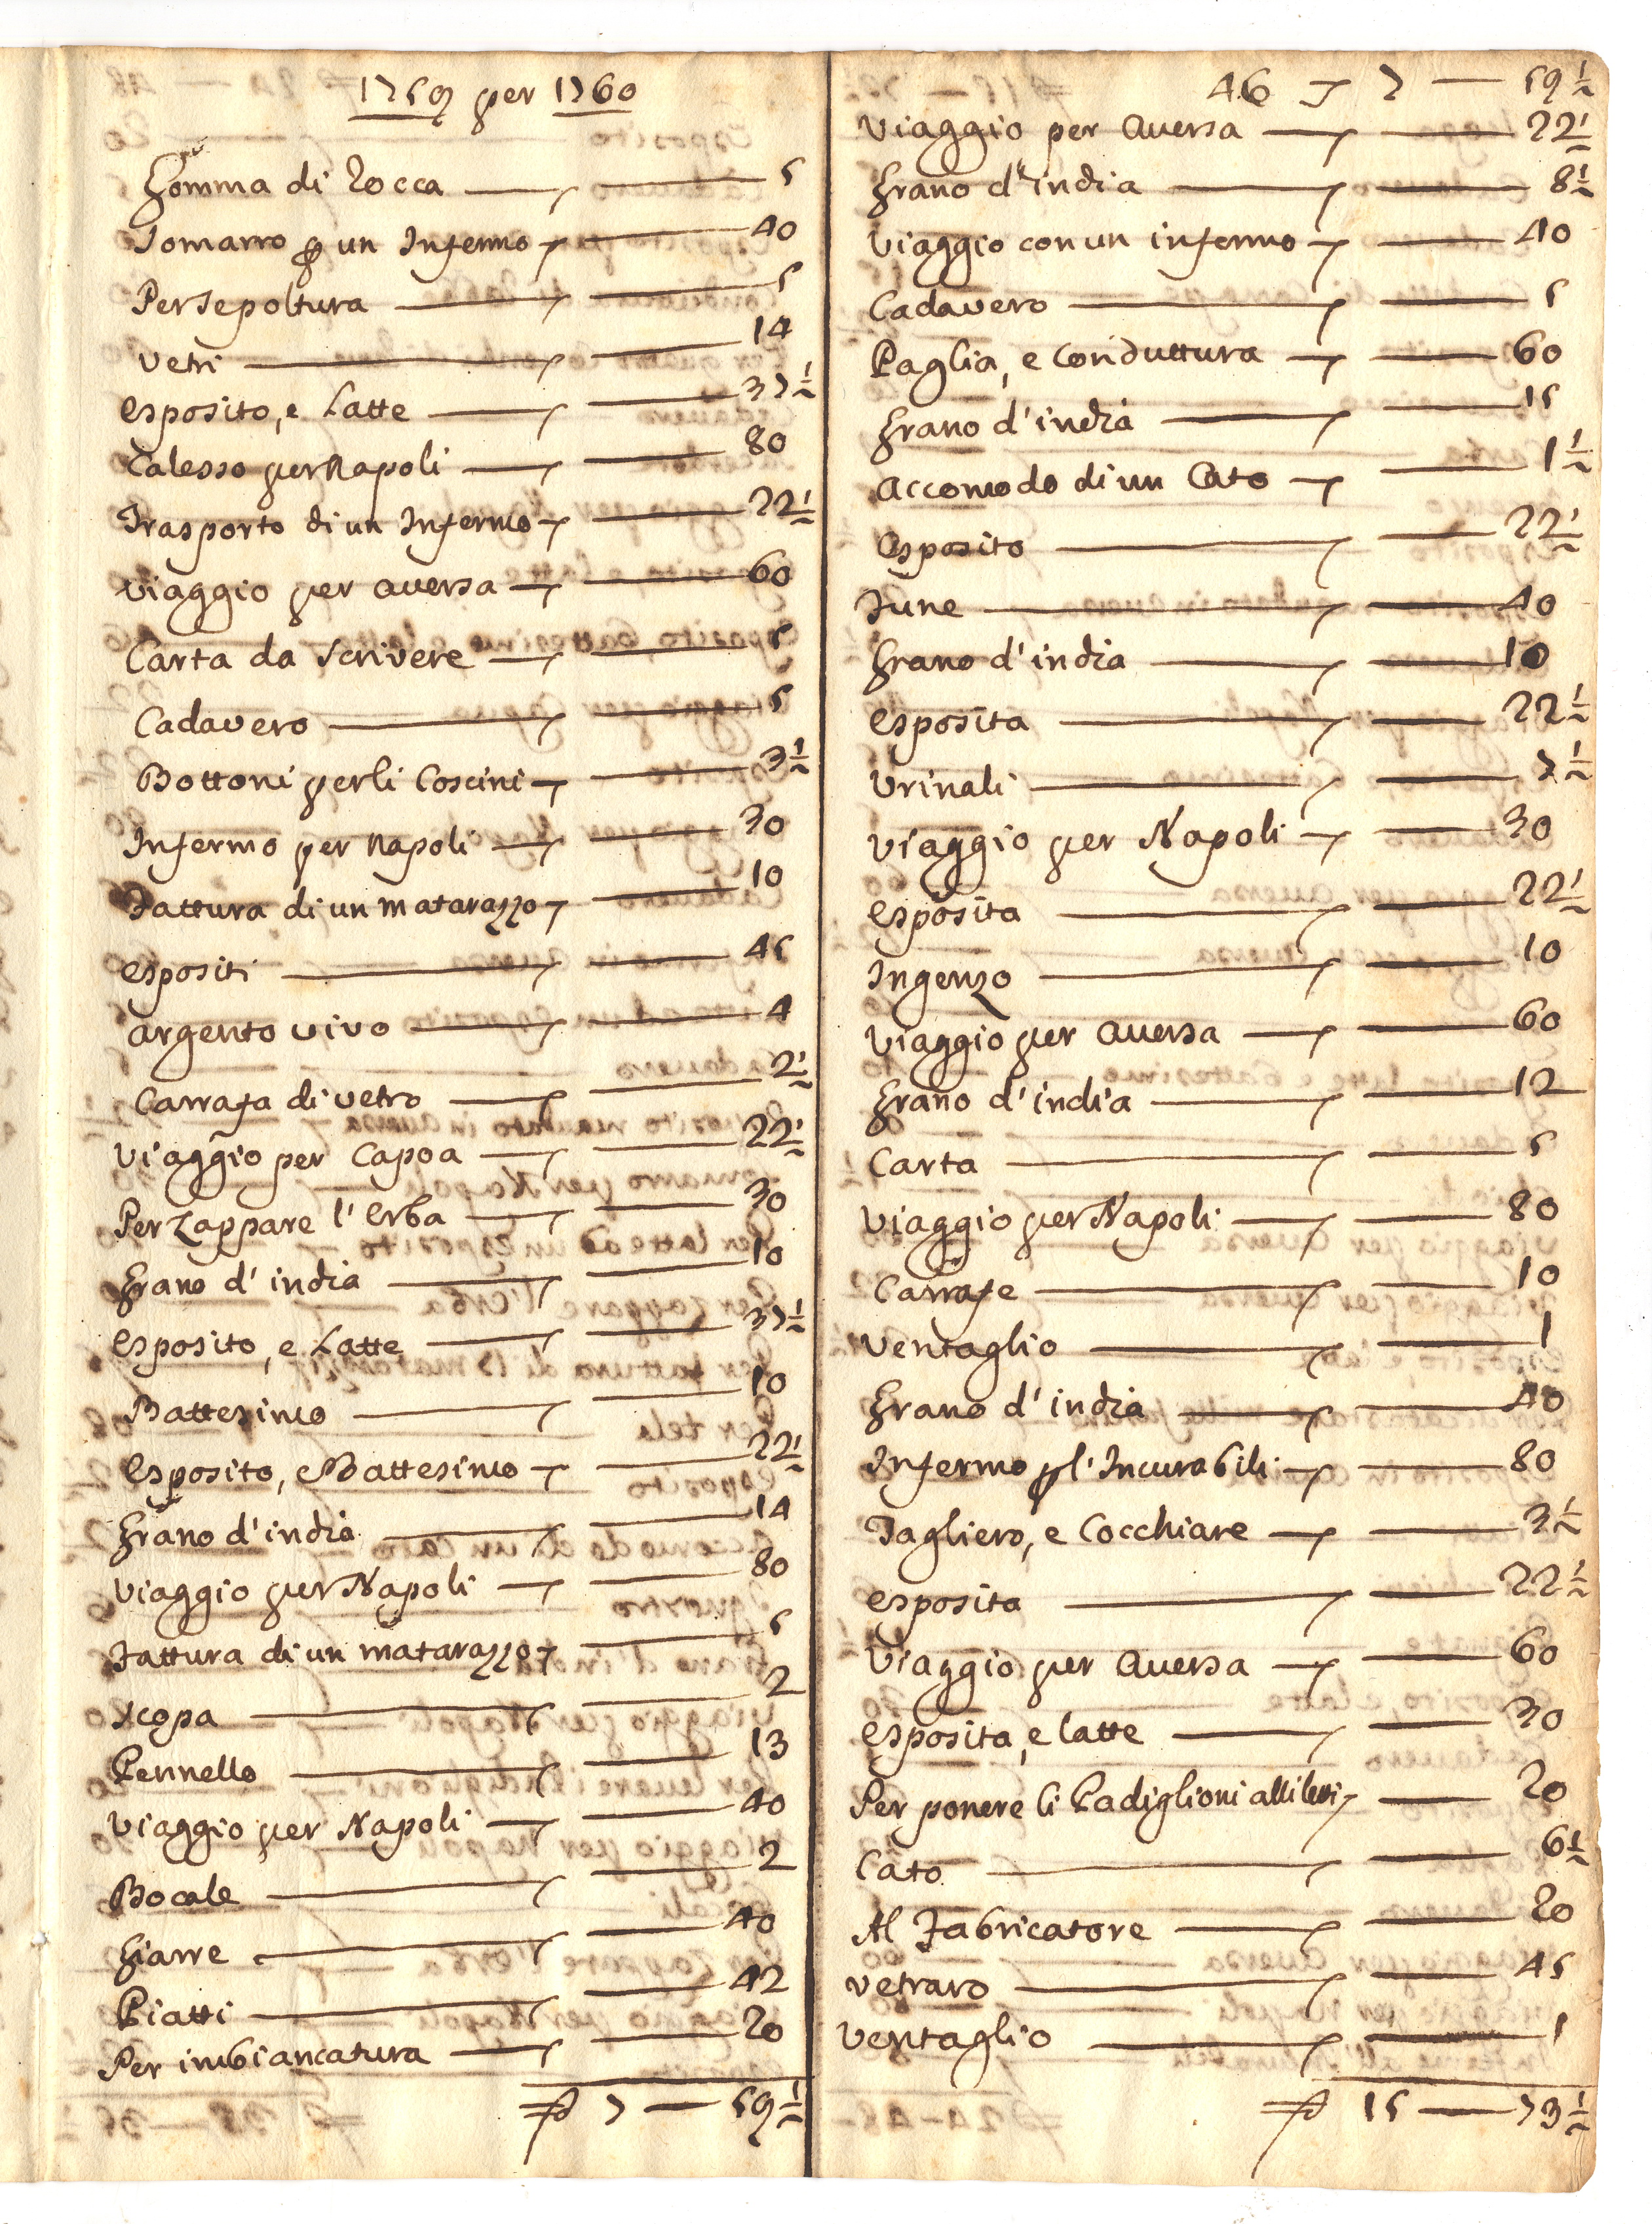 1759 per 1760
Gomma di Rocca — 5
Somarro p un Infermo — 40
Per sepoltura — 5
Vetri — 14
Esposito, e Latte — 37½
Calesso per Napoli — 80
Trasporto di un Infermo — 22½
Viaggio per Aversa — 60
Carta da scrivere — 5
Cadavero — 5
Bottoni per li Coscini — 3½
Infermo per Napoli — 30
Fattura di un matarazzo — 10
Espositi — 45
Argento vivo — 4
Carrafa di vetro — 2½
Viaggio per Capoa — 22½
Per Zappare l'Erba — 30
Grano d'india — 10
Esposito, e Latte — 37½
Battesimo — 10
Esposito, e Battesimo — 22½
Grano d'india — 14
Viaggio per Napoli — 80
Fattura di un matarazzo — 5
Scopa — 2
Pennello — 13
Viaggio per Napoli — 40
Bocale — 2
Giarre — 40
Piatti — 42
Per imbiancatura — 20
7 — 59½
46 7 — 59½
Viaggio per Aversa — 22½
Grano d'india — 8½
Viaggio con un infermo — 40
Cadavero — 5
Paglia, e Conduttura — 60
Grano d'india — 15
Accomodo di un Cato — 1½
Esposito — 22½
Fune — 40
Grano d'india — 10
Esposita — 22½
Urinali — 7½
Viaggio per Napoli — 30
Esposita — 22½
Ingenzo — 10
Viaggio per Aversa — 60
Grano d'india — 12
Carta — 5
Viaggio per Napoli — 80
Carrafe — 10
Ventaglio — 1
Grano d'india — 40
Infermo p l'Incurabili — 80
Tagliero, e Cocchiare — 3½
Esposita — 22½
Viaggio per Aversa — 60
Esposita, e latte — 30
Per ponere li Padiglioni alli letti — 20
Cato — 6½
Al Fabricatore — 20
Vetraro — 45
Ventaglio — 1
15 — 73½